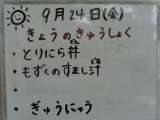 9月24日(金)
きょうのきゅうしょく
・とりにら丼
・もずくのすまし汁
・ぎゅうにゅう